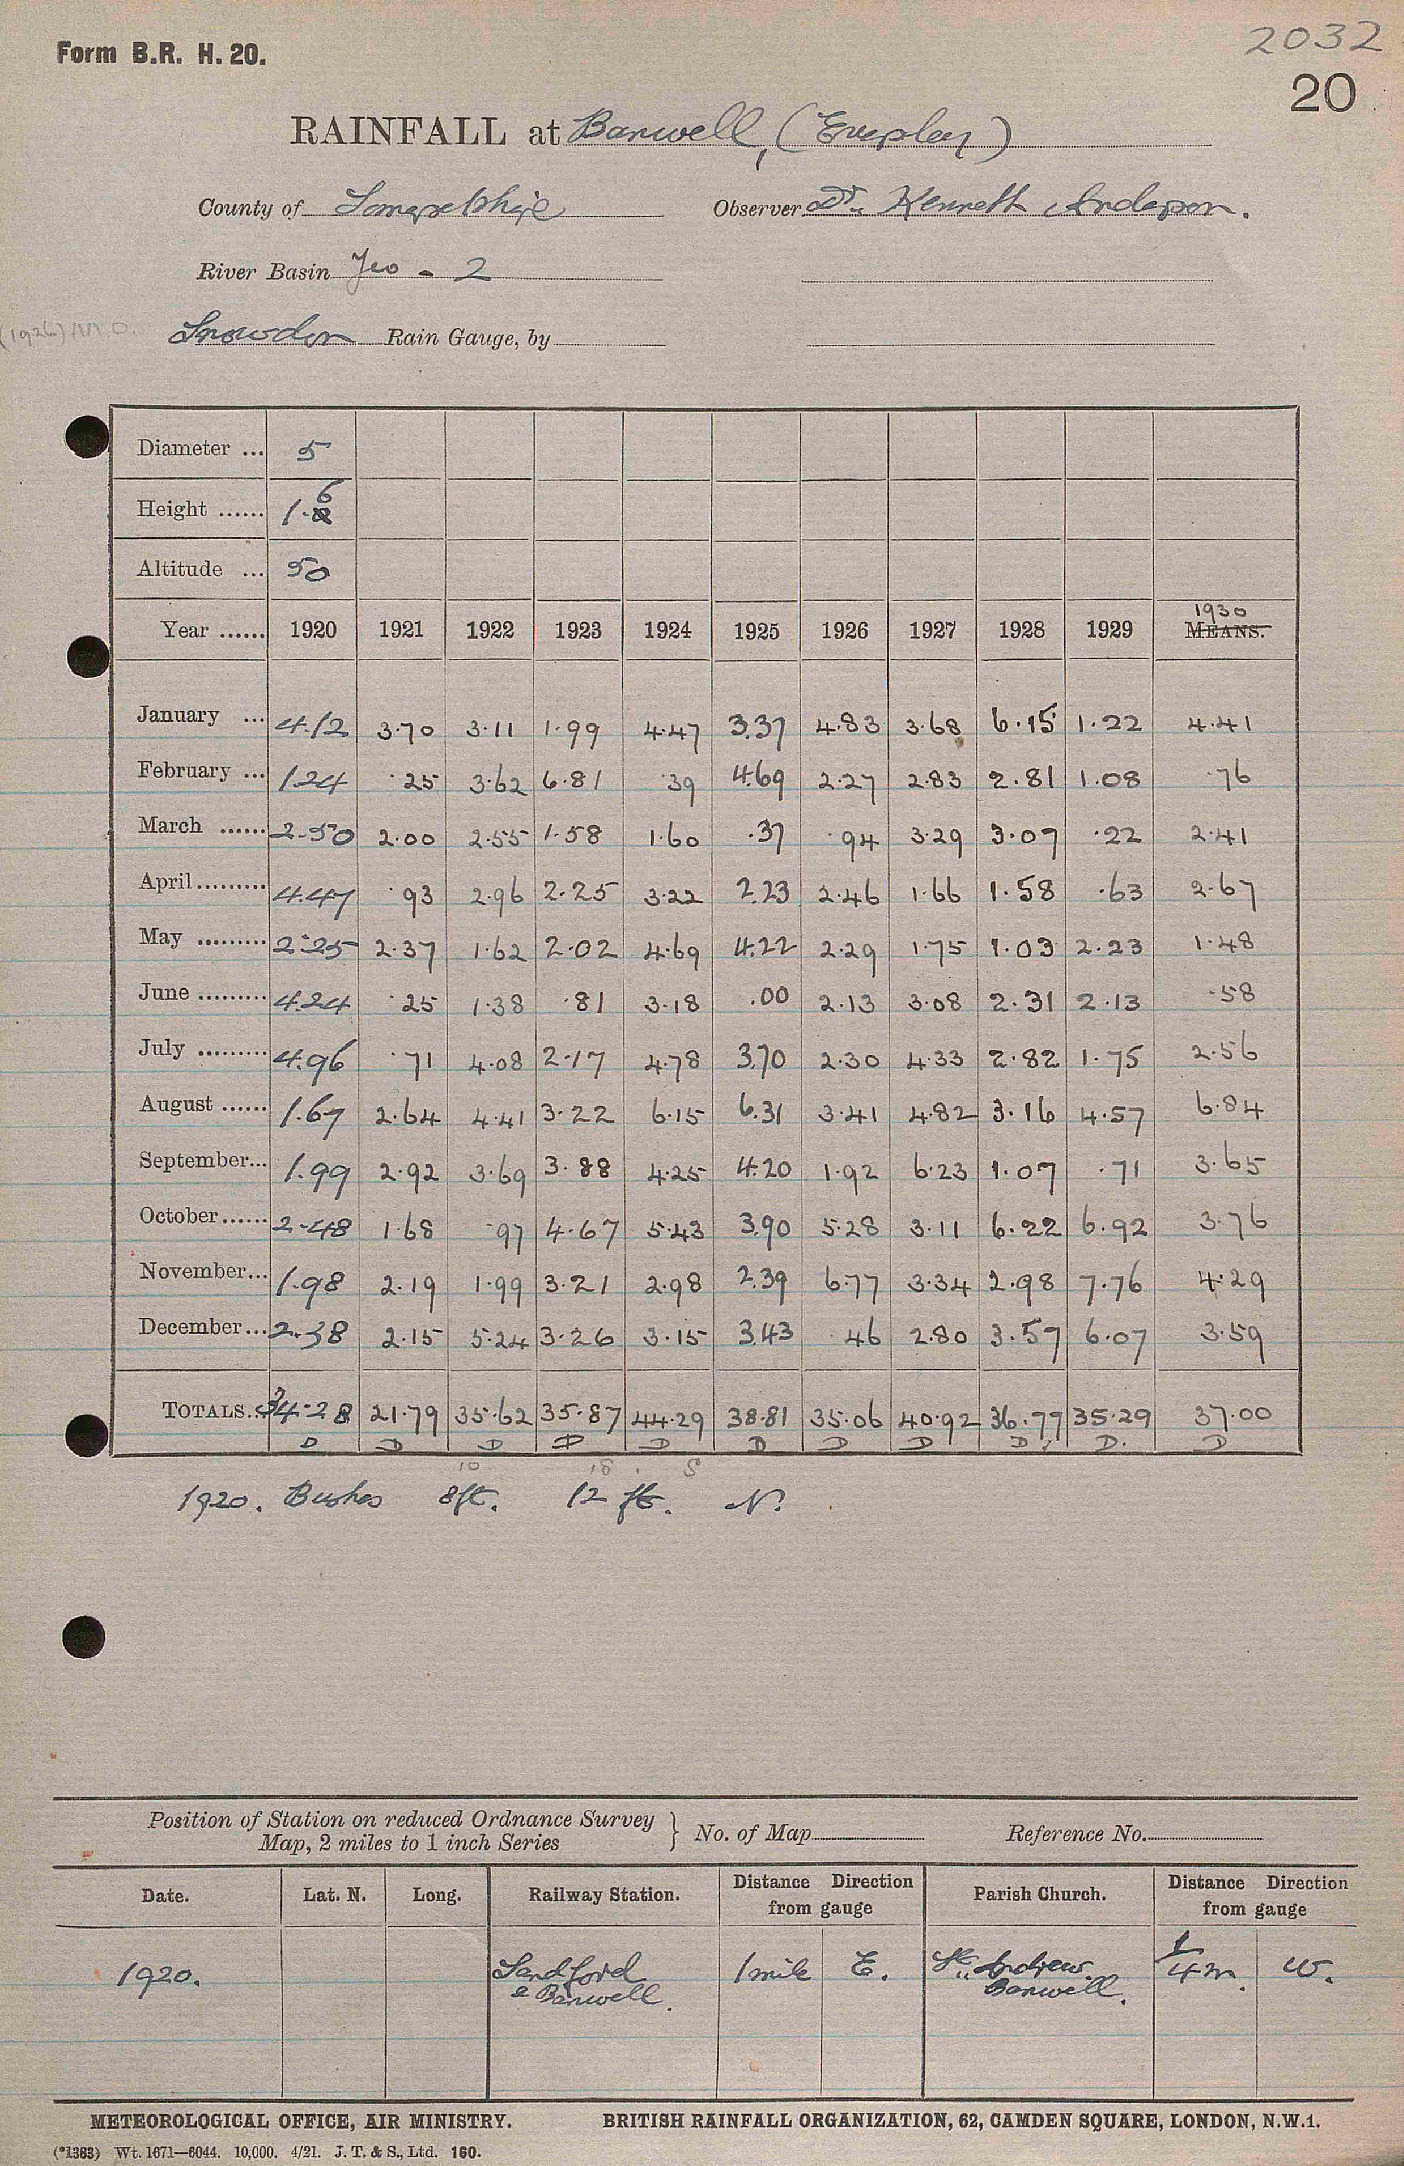 2032
Form B.R. H. 20.
20
RAINFALL at Banwell, (Eversley)
County of Somersetshire Observer Dr. Kenneth Anderson.
River Basin Yeo - 2
(1926) M.O. Snowdon Rain Gauge, by
Diameter ... 5
Height ...... 1.6
Altitude ... 50
Year ...... 1920 1921 1922 1923 1924 1925 1926 1927 1928 1929 1930 MEANS.
January ... 4.12 3.70 3.11 1.99 4.47 3.37 4.83 3.68 6.15 1.22 4.41
February ... 1.24 .25 3.62 6.81 .39 4.69 2.27 2.83 2.81 1.08 .76
March ...... 2.50 2.00 2.55 1.58 1.60 .37 .94 3.29 3.07 .22 2.41
April ......... 4.47 .93 2.96 2.25 3.22 2.23 2.46 1.66 1.58 .63 2.67
May ......... 2.25 2.37 1.62 2.02 4.69 4.22 2.29 1.75 1.03 2.23 1.48
June ......... 4.24 .25 1.38 .81 3.18 .00 2.13 3.08 2.31 2.13 .58
July ......... 4.96 .71 4.08 2.17 4.78 3.70 2.30 4.33 2.82 1.75 2.56
August ...... 1.67 2.64 4.41 3.22 6.15 6.31 3.41 4.82 3.16 4.57 6.84
September... 1.99 2.92 3.69 3.88 4.25 4.20 1.92 6.23 1.07 .71 3.65
October...... 2.48 1.68 .97 4.67 5.43 3.90 5.28 3.11 6.22 6.92 3.76
November... 1.98 2.19 1.99 3.21 2.98 2.39 6.77 3.34 2.98 7.76 4.29
December... 2.38 2.15 5.24 3.26 3.15 3.43 .46 2.80 3.57 6.07 3.59
TOTALS. 34.28 21.79 35.62 35.87 44.29 38.81 35.06 40.92 36.77 35.29 37.00
D D D D D D D D D D. D
10 18 . S
1920. Bushes 8ft. 12 ft. N.
Position of Station on reduced Ordnance Survey
Map, 2 miles to 1 inch Series } No. of Map Reference No.
Date. Lat. N. Long. Railway Station. Distance Direction from gauge Parish Church. Distance Direction from gauge
1920. Sandford & Banwell. 1 mile E. St. Andrew Banwell. 1/4 m. W.
METEOROLOGICAL OFFICE, AIR MINISTRY. BRITISH RAINFALL ORGANIZATION, 62, CAMDEN SQUARE, LONDON, N.W.1.
(*1383) Wt. 1671—6044. 10,000. 4/21. J. T. & S., Ltd. 160.